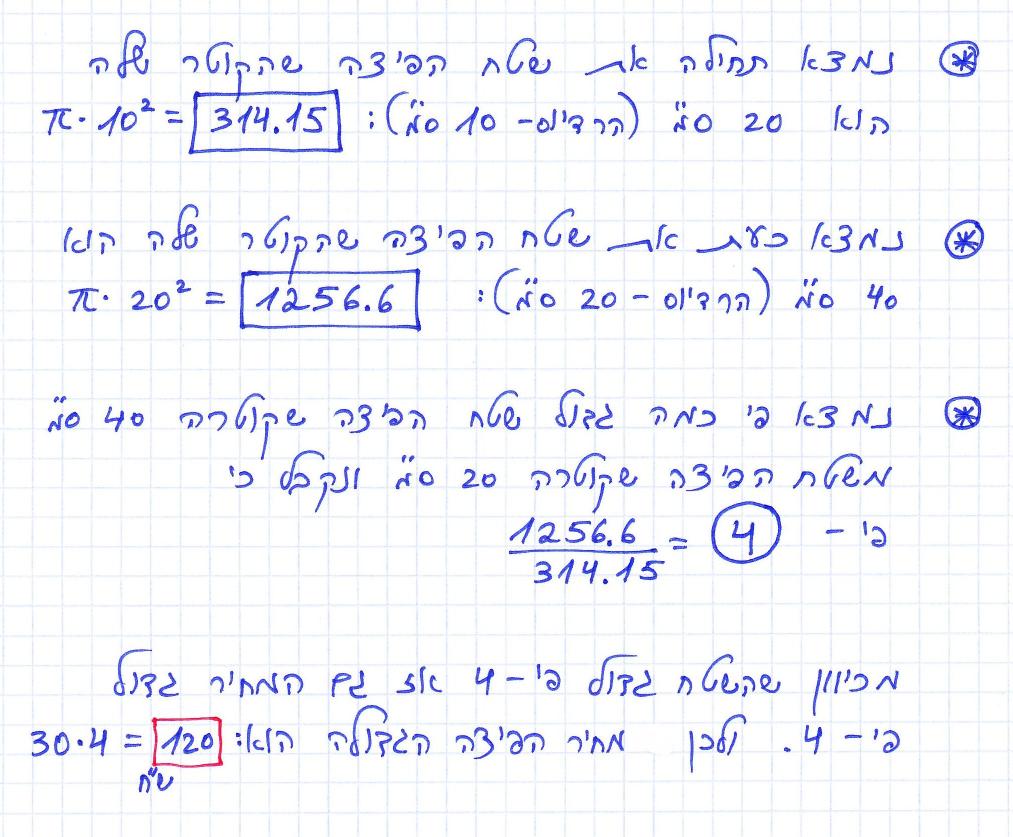 נמצא תחילה את שטח הפיצה שהקוטר שלה
הוא 20 ס"מ (הרדיוס- 10 ס"מ): π · 10² = 314.15
נמצא כעת את שטח הפיצה שהקוטר שלה הוא
40 ס"מ (הרדיוס - 20 ס"מ): π · 20² = 1256.6
נמצא פי כמה גדול שטח הפיצה שקוטרה 40 ס"מ
משטח הפיצה שקוטרה 20 ס"מ ונקבל כי
פי - 1256.6 / 314.15 = 4
מכיוון שהשטח גדול פי - 4 אז גם המחיר גדול
פי - 4. ולכן מחיר הפיצה הגדולה הוא: 30·4 = 120
ש"ח